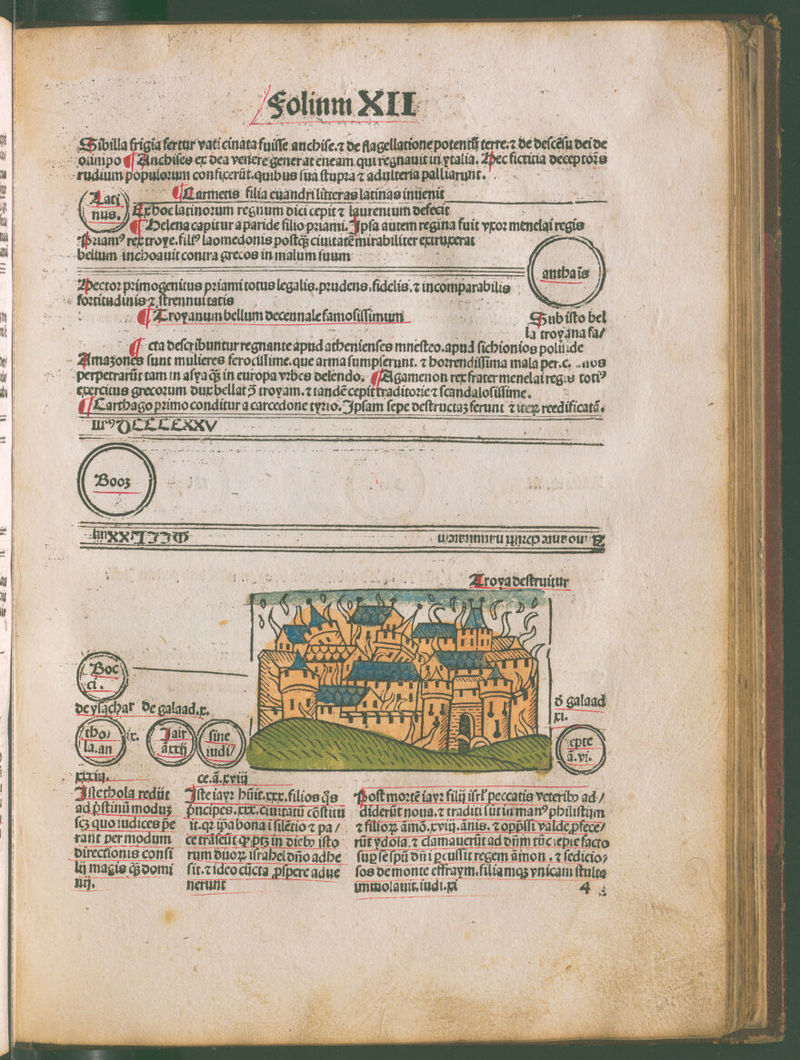 Folium XII
Sibilla frigia fertur vaticinata fuisse anchise.⁊ de flagellatione potentū terre.⁊ de descēsu dei de
olimpo ¶ Anchises ex dea venere generat eneam qui regnauit in ytalia. Hec fictitia deceptores
rudium populorum confixerūt.quibus sua stupra ⁊ adulteria palliarunt.
¶ Carmetis filia euandri litteras latinas inuenit
Lati
nus.
Ex hoc latinorum regnum dici cepit ⁊ laurentum defecit
¶ Helena capitur a paride filio priami. Ipsa autem regina fuit vxor menelai regis
Priamꝰ rex troye.filiꝰ laomedonis postqȝ ciuitatē mirabiliter extruxerat
bellum inchoauit contra grecos in malum suum
anthais
Hector primogenitus priami totus legalis.prudens.fidelis.⁊ incomparabilis
fortitudinis ⁊ strennuitatis
¶ Troyanum bellum decennale famosissimum
Sub isto bel
la troyana fa/
¶ cta describuntur regnante apud athenienses mnesteo.apud sichionios
Amazones sunt mulieres ferocissime.que arma sumpserunt. ⁊ horrendissima mala per.c.
perpetrarūt tam in asya qȝ in europa vrbes delendo. ¶ Agamenon rex frater menelai regis totiꝰ
exercitus grecorum dux bellat ꝯ troyam.⁊ tandē cepit traditorie ⁊ scandalosissime.
¶ Carthago primo conditur a carcedone tyrio. Ipsam sepe destructaȝ ferunt ⁊ iteꝝ reedificatā.
IIIIꝰ DCCCCXXV
Booz
Troya destruitur
Boc
ci.
de ysachar de galaad.x.
ð galaad
xi.
tho/
la.an
ix.
Jair
ā.xxij
sine
iudi/
epte
ā.vi.
xxiij.
ce.ā.xviij
Iste thola redijt
ad pristinū moduȝ
scȝ quo iudices p̄e
rant per modum
directionis consi
lij magis qȝ domi
nij.
Iste iayr hūit.xxx.filios q̄s
prīcipes.xxx.ciuitatū cōstitu
it.qꝛ ip̄a bona ī silētio ⁊ pa/
ce trāsēūt ꝙ ptȝ in diebꝰ isto
rum duoꝝ israhel dño adhe
sit.⁊ ideo cūcta prospere adue
nerunt
Post mortē iayr filij isrl' peccatis veteribꝰ ad/
diderūt noua.⁊ traditi sūt in manꝰ philistijm
⁊ filioꝝ āmō.xviij.ānis. ⁊ oppssi valde.prfece/
rūt ydola.⁊ clamauerūt ad dñm tūc iepte facto
sup se spū dñi pcussit regem āmon. ⁊ sedicio/
sos de monte effraym.filiamqȝ vnicam stulte
immolauit.iudi.xi
4